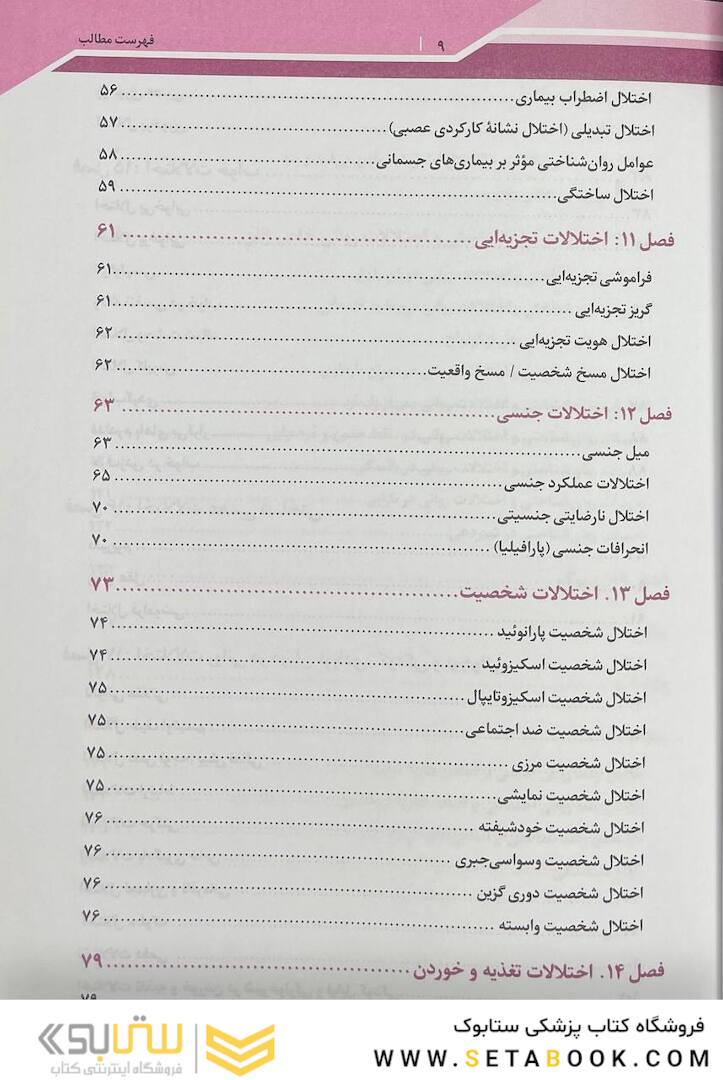 فهرست مطالب | ۹
اختلال اضطراب بیماری ۵۶
اختلال تبدیلی (اختلال نشانهٔ کارکردی عصبی) ۵۷
عوامل روان‌شناختی مؤثر بر بیماری‌های جسمانی ۵۸
اختلال ساختگی ۵۹
فصل ۱۱: اختلالات تجزیه‌ایی ۶۱
فراموشی تجزیه‌ایی ۶۱
گریز تجزیه‌ایی ۶۱
اختلال هویت تجزیه‌ایی ۶۲
اختلال مسخ شخصیت / مسخ واقعیت ۶۲
فصل ۱۲: اختلالات جنسی ۶۳
میل جنسی ۶۳
اختلالات عملکرد جنسی ۶۵
اختلال نارضایتی جنسیتی ۷۰
انحرافات جنسی (پارافیلیا) ۷۰
فصل ۱۳. اختلالات شخصیت ۷۳
اختلال شخصیت پارانوئید ۷۴
اختلال شخصیت اسکیزوئید ۷۴
اختلال شخصیت اسکیزوتایپال ۷۵
اختلال شخصیت ضد اجتماعی ۷۵
اختلال شخصیت مرزی ۷۵
اختلال شخصیت نمایشی ۷۵
اختلال شخصیت خودشیفته ۷۶
اختلال شخصیت وسواسی‌جبری ۷۶
اختلال شخصیت دوری گزین ۷۶
اختلال شخصیت وابسته ۷۶
فصل ۱۴. اختلالات تغذیه و خوردن ۷۹
فروشگاه کتاب پزشکی ستابوک
WWW.SETABOOK.COM
ستابوک
فروشگاه اینترنتی کتاب